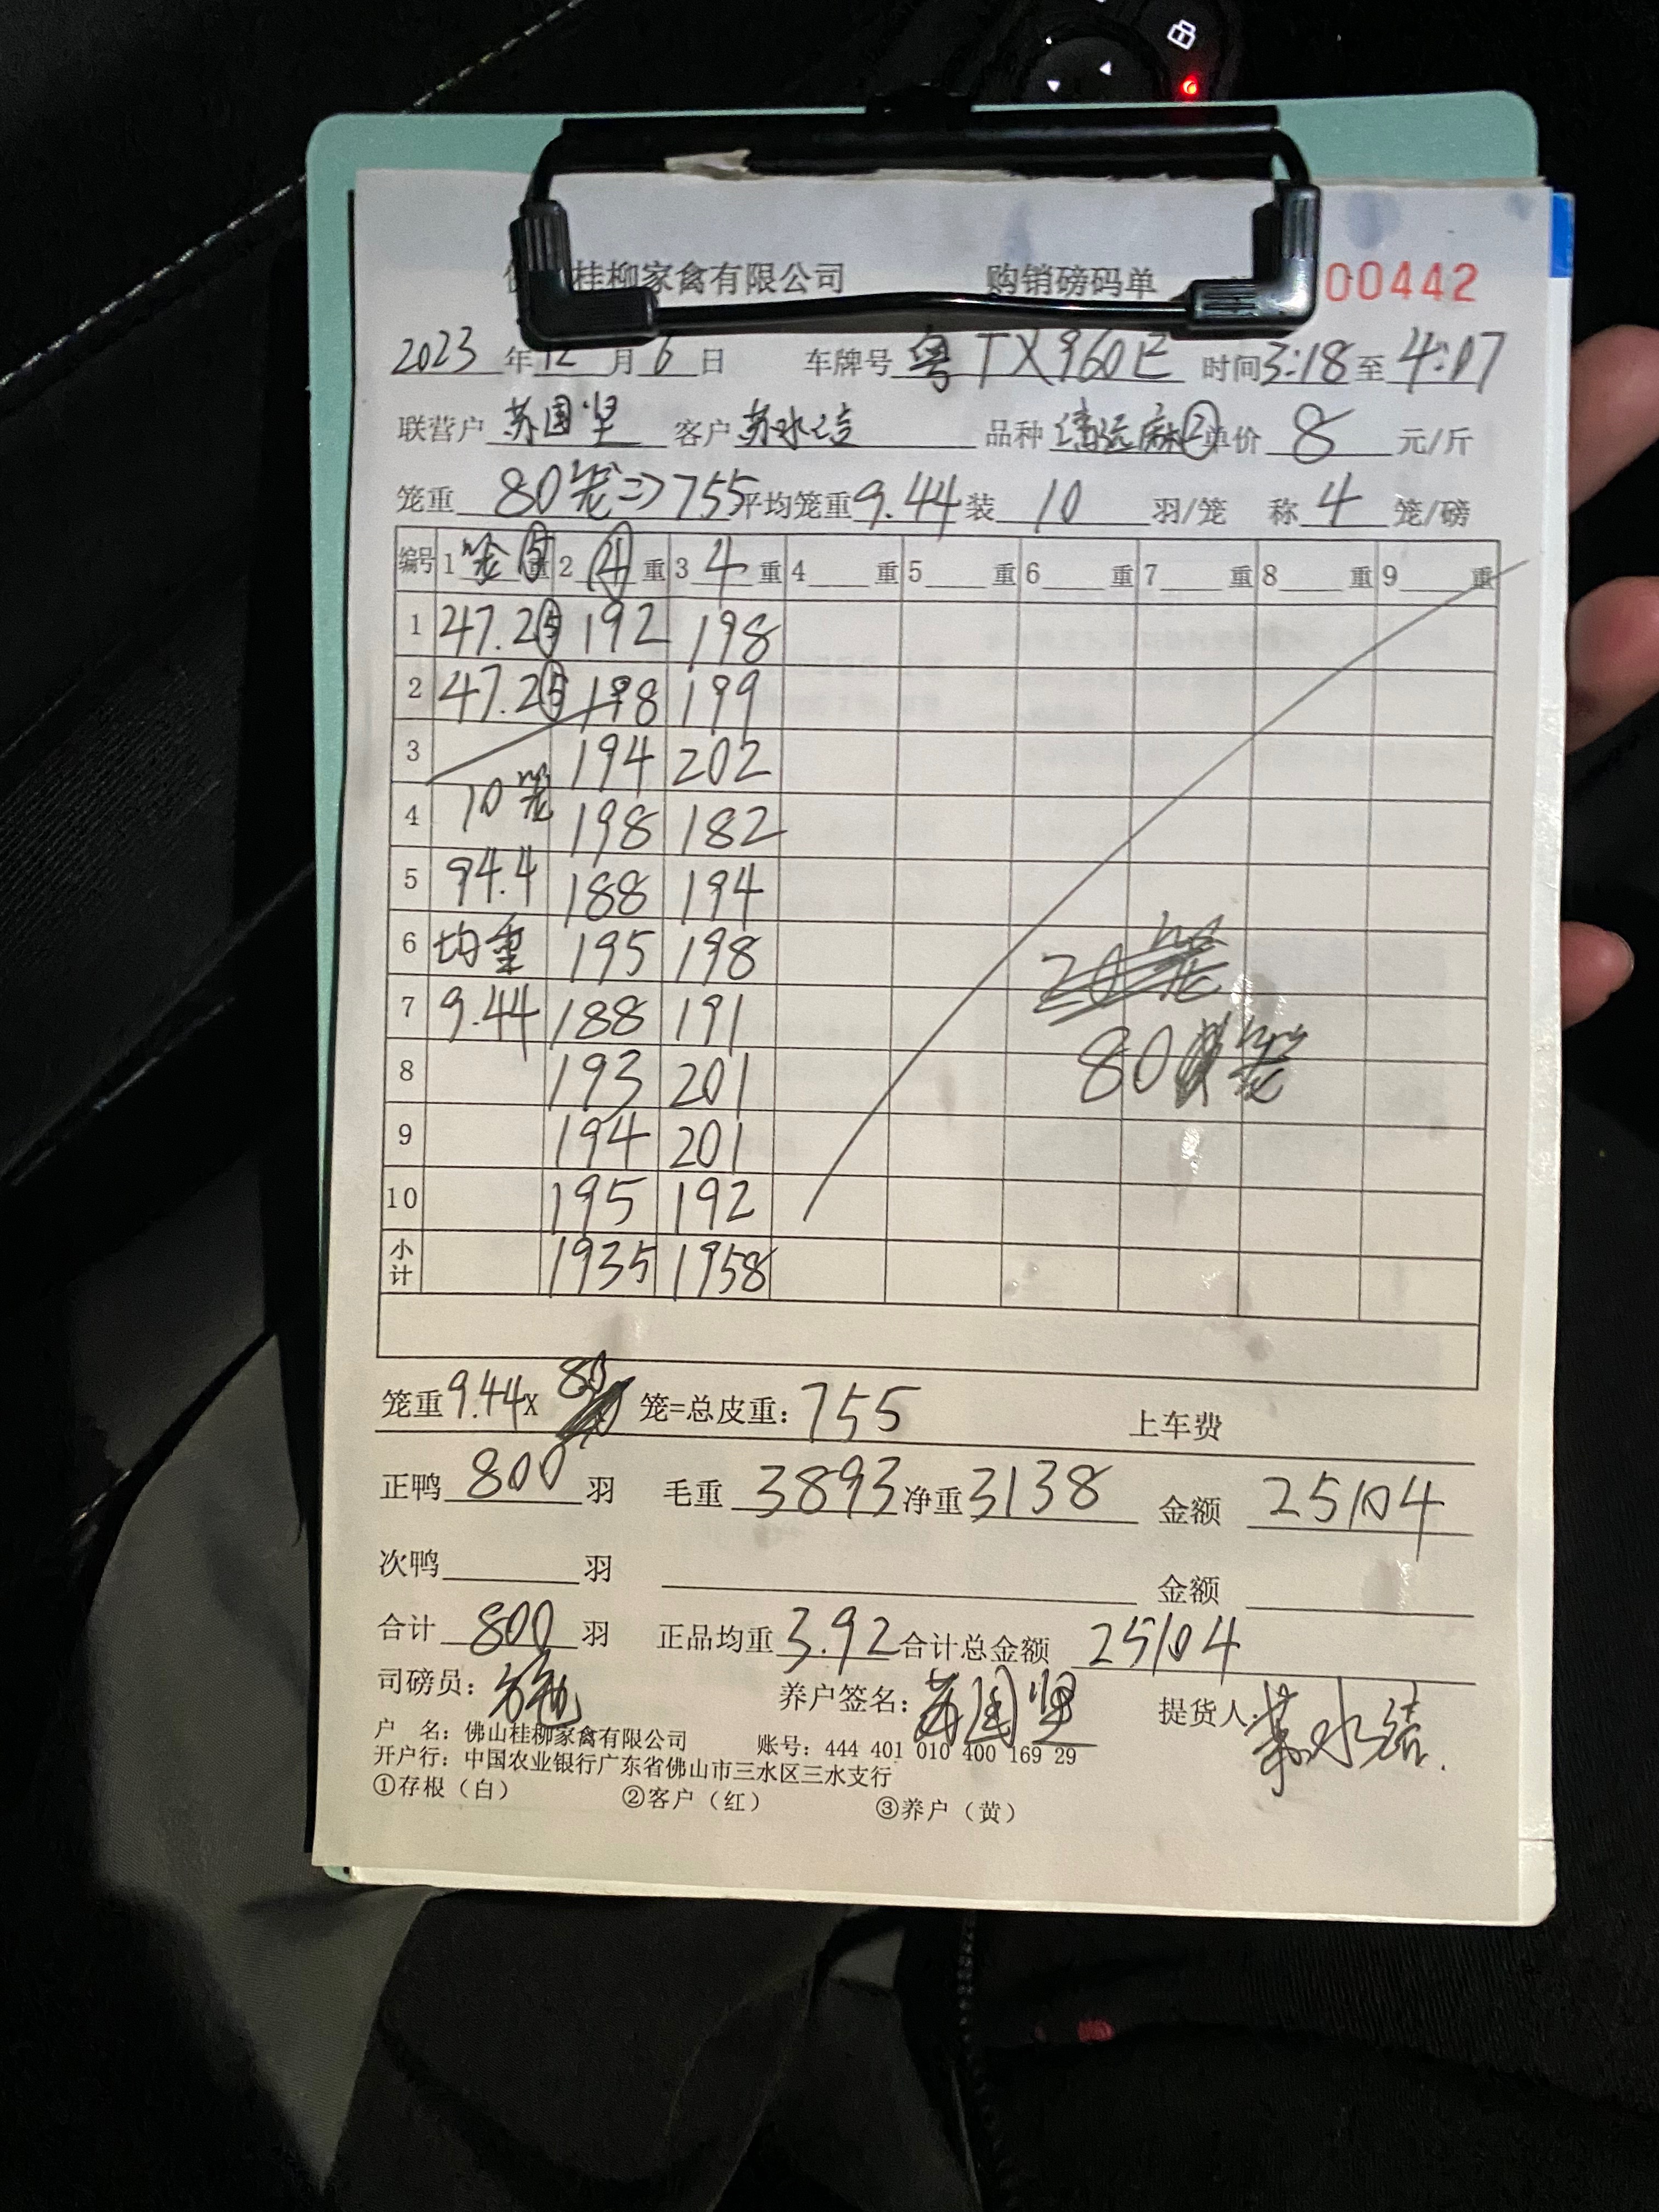 桂柳家禽有限公司 购销磅码单 00442
2023年12月6日 车牌号 粤TX960E 时间3:18至4:07
联营户 苏国坚 客户 苏水洁 品种 清远麻② 单价 8 元/斤
笼重 80笼=>755 平均笼重 9.44 装 10 羽/笼 称 4 笼/磅
编号 1 笼⑤重 2 ④ 重 3 4 重 4 重 5 重 6 重 7 重 8 重 9 重
1 47.2⑤ 192 198
2 47.2⑤ 198 199
3 194 202
4 10笼 198 182
5 94.4 188 194
6 均重 195 198
7 9.44 188 191
8 193 201
9 194 201
10 195 192
20笼
80笼
小计 1935 1958
笼重 9.44x 80 笼=总皮重：755 上车费
正鸭 800 羽 毛重 3893 净重 3138 金额 25104
次鸭 羽 金额
合计 800 羽 正品均重 3.92 合计总金额 25104
司磅员： 养户签名：苏国坚 提货人：苏水洁
户 名：佛山桂柳家禽有限公司 账号：444 401 010 400 169 29
开户行：中国农业银行广东省佛山市三水区三水支行
①存根（白） ②客户（红） ③养户（黄）